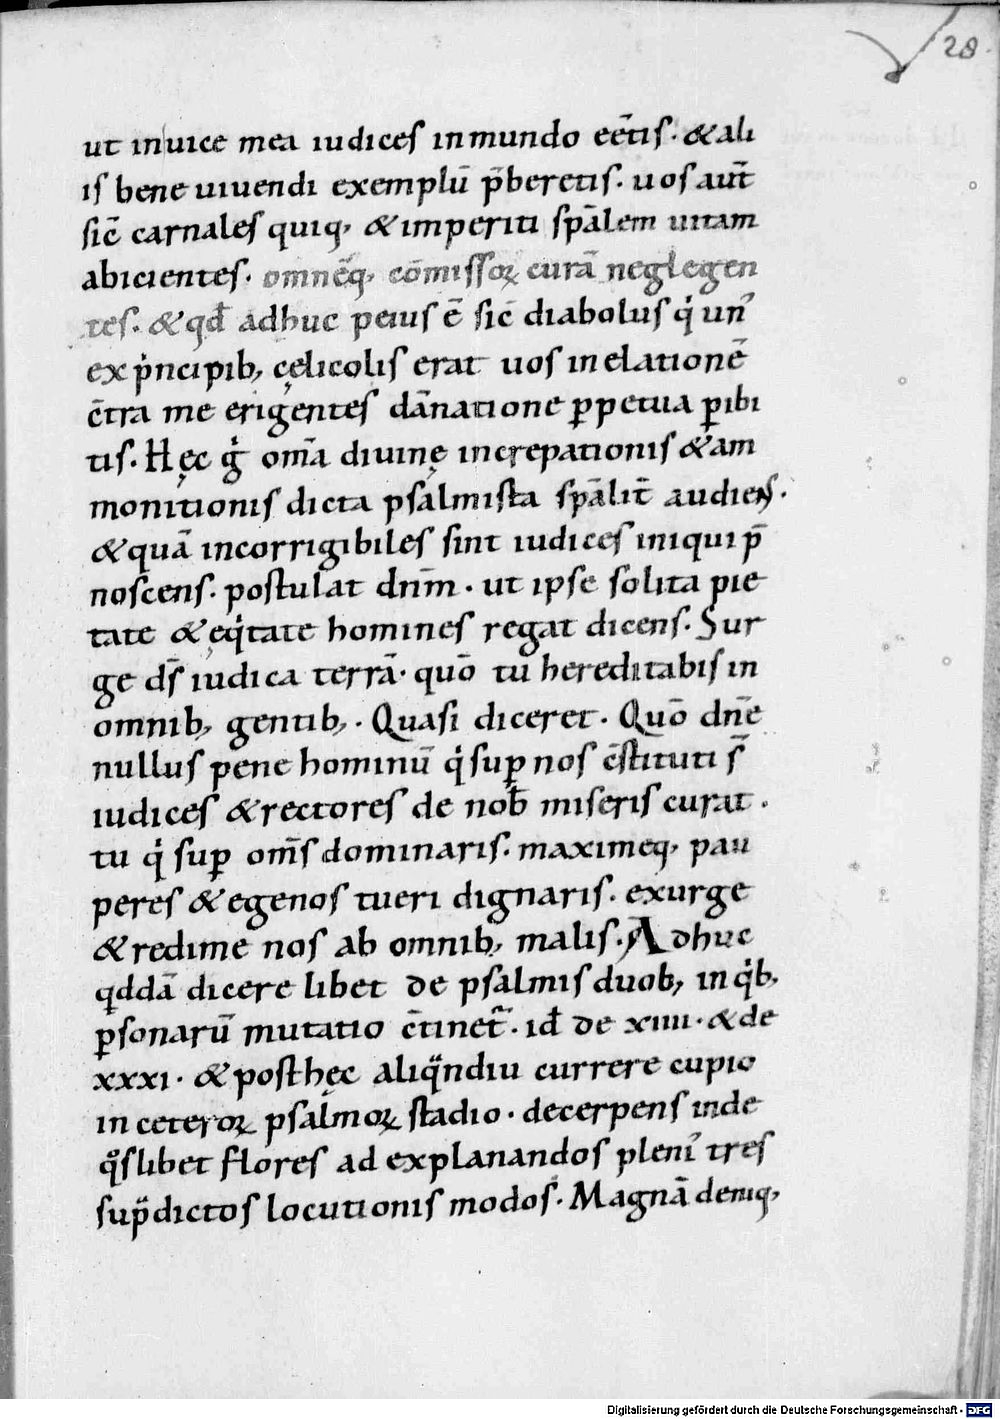 28
ut inuice mea iudices in mundo eētis. & ali
is bene uiuendi exemplū p̄beretis. uos aut̄
sic̄ carnales quiq, & imperiti sp̄alem uitam
abicientes. omnēq, cōmissoꝝ curā neglegen
tes. & qđ adhuc peius ē sic̄ diabolus qͥ un᾽
ex pͥncipib, cęlicolis erat uos in elationē
c̄tra me erigentes dānatione ꝑpetua ꝑibi
tis. Hęc gͥ om̄a diuinę increpationis & am
monitionis dicta psalmista sp̄alit̄ audiens.
& quā incorrigibiles sint iudices iniqui p̄
noscens. postulat dnm̄. ut ipse solita pie
tate & ęqͥtate homines regat dicens. Sur
ge ds̄ iudica terrā. quō tu hereditabis in
omnib, gentib,. Quasi diceret. Quō dn̄e
nullus pene hominū qͥ suꝑ nos c̄stituti s̄
iudices & rectores de nob̄ miseris curat.
tu qͥ suꝑ om̄s dominaris. maximeq, pau
peres & egenos tueri dignaris. exurge
& redime nos ab omnib, malis. Adhuc
qddā dicere libet de psalmis duob, in qͥb,
ꝑsonarū mutatio c̄tinet᷑. id̄ de xiiii. & de
xxxi. & posthęc aliqͣndiu currere cupio
in ceteroꝝ psalmoꝝ stadio. decerpens inde
qͦslibet flores ad explanandos pleni᾽ tres
supͣdictos locutionis modos. Magnā deniq,
Digitalisierung gefördert durch die Deutsche Forschungsgemeinschaft - DFG